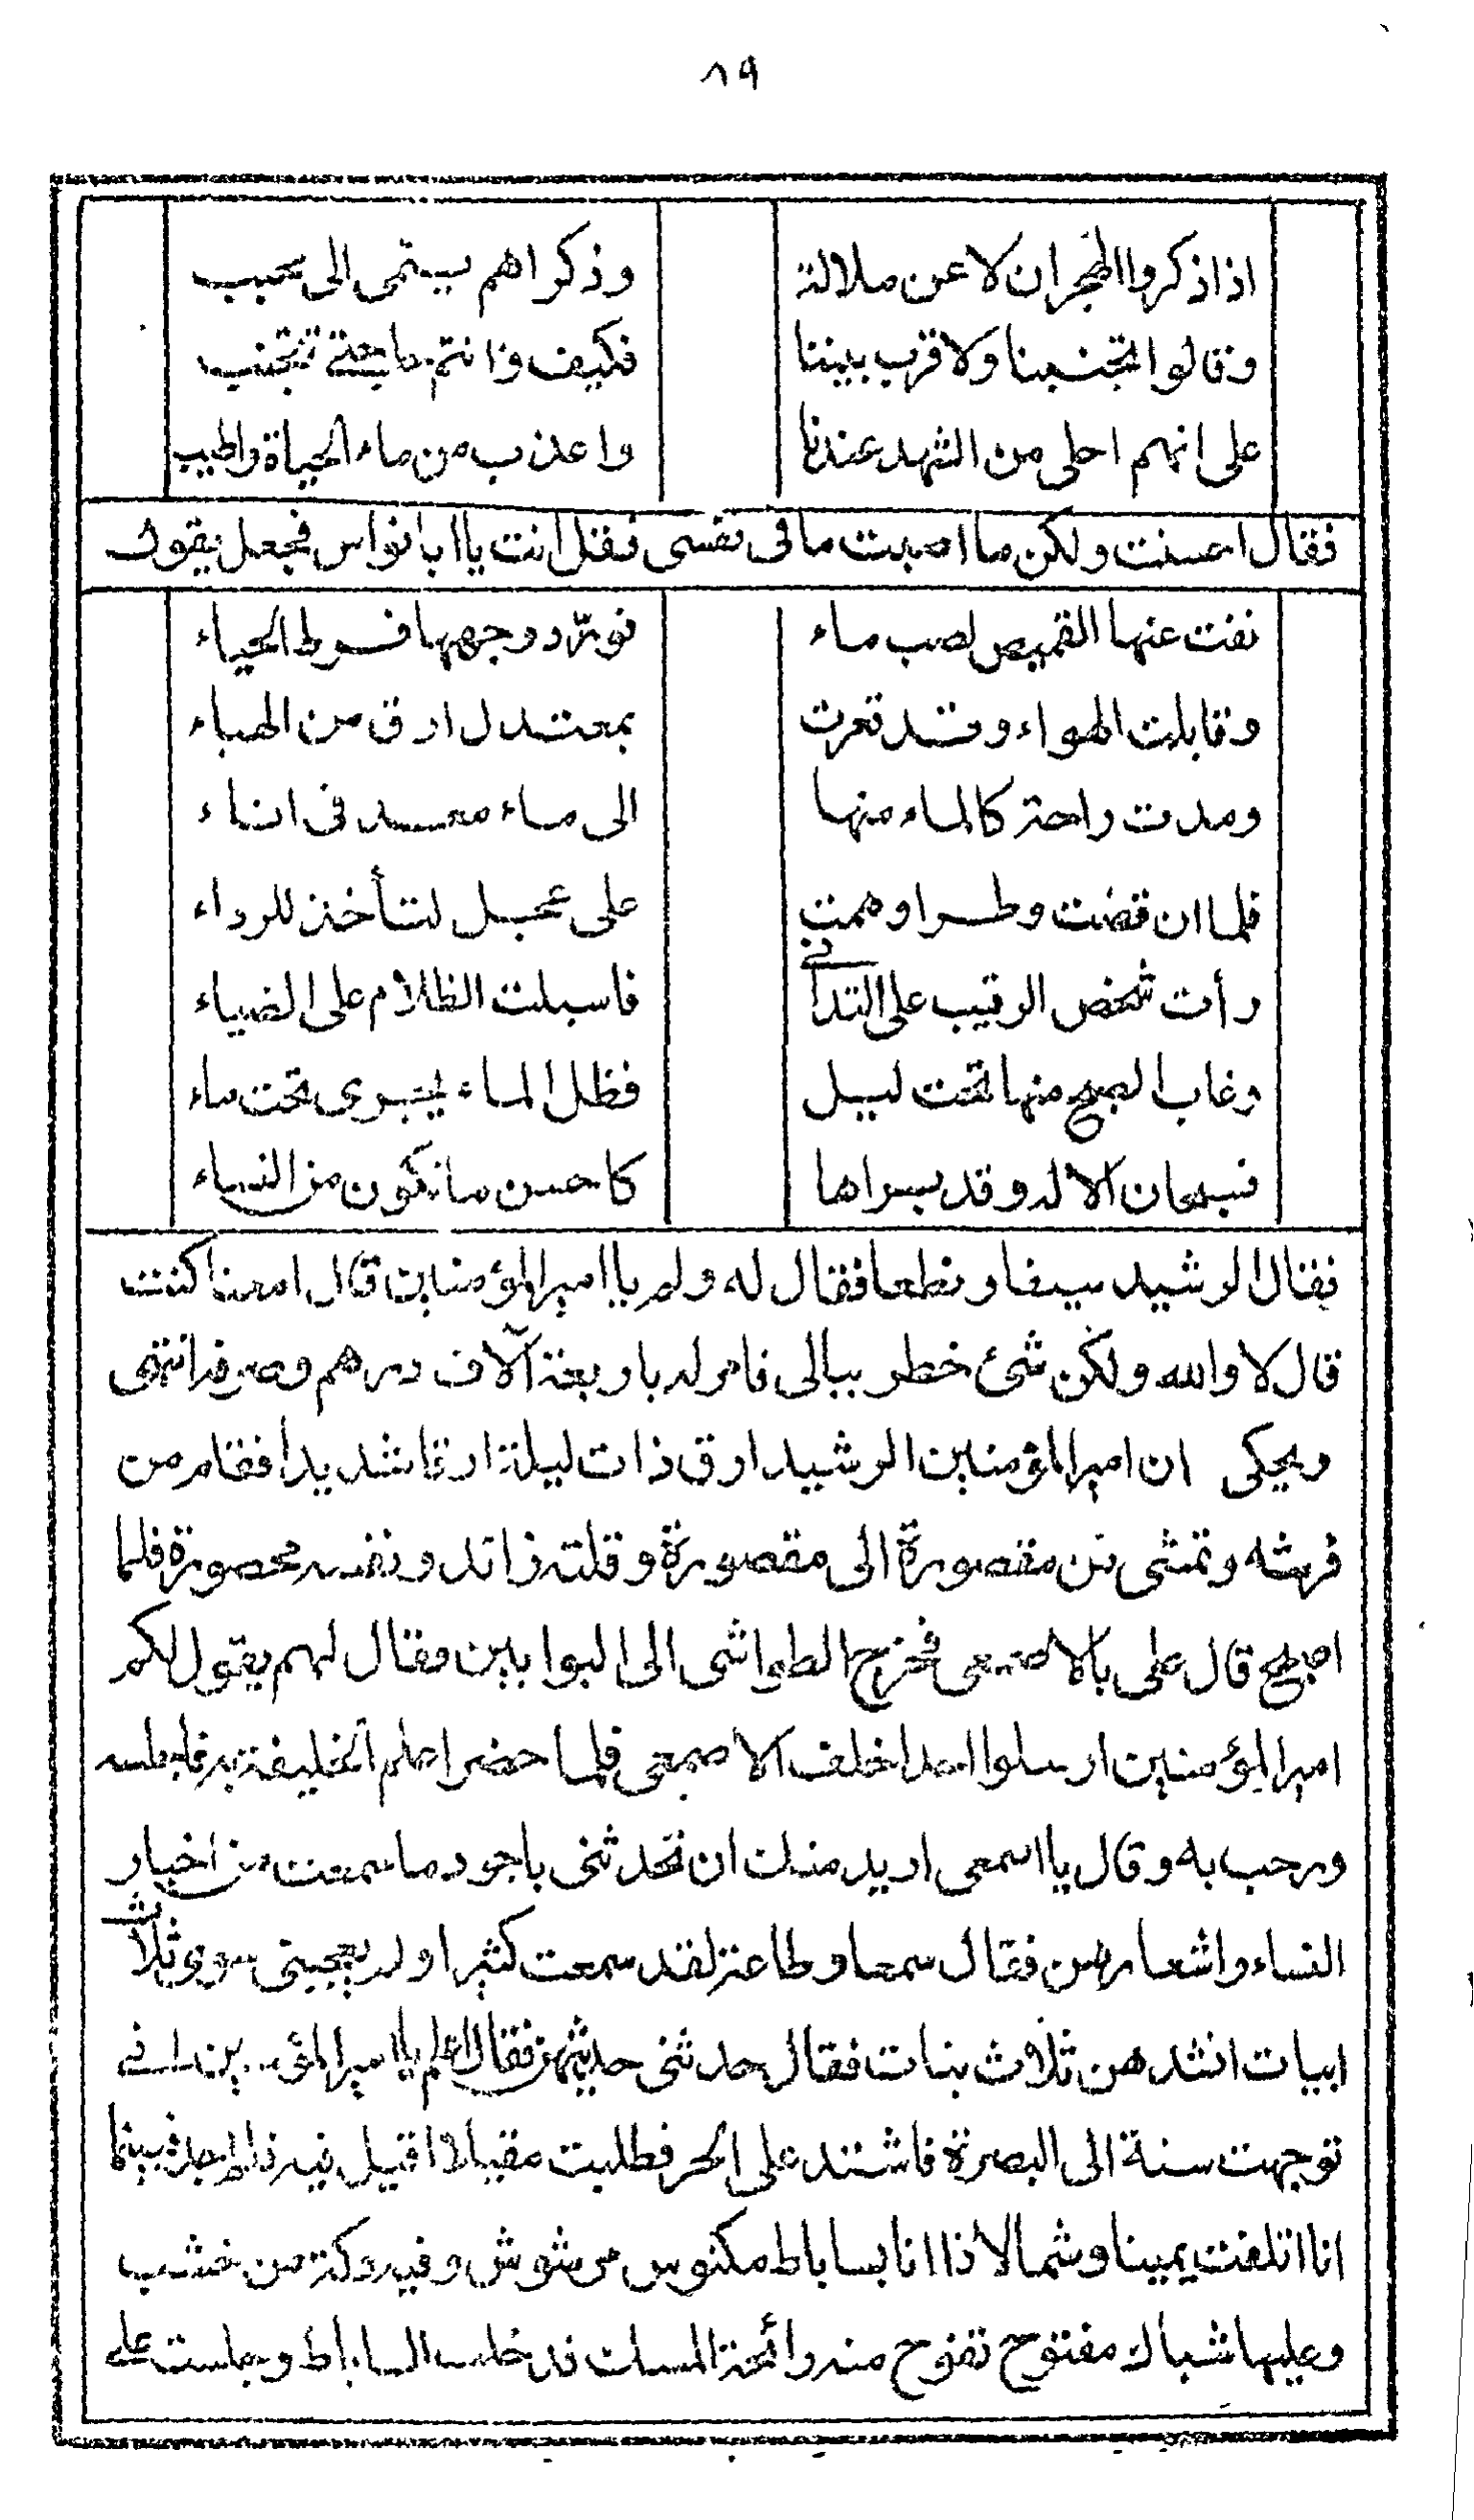 ٨٩
اذا ذكروا الهجران لا عن ملالة وذكراهم يستمى الى محبب
وقالوا اتجنبنا ولا قرب بيننا فكيف وانتم حاجتى تتجنب
على انهم احلى من الشهد عندنا واعذب من ماء الحياة واطيب
فقال احسنت ولكن ما اصبت ما فى نفسى فقل انت يا ابا نواس فجعل يقول
نفت عنها القميص لصب ماء فورّد وجهها فرط الحياء
وقابلت الهواء وقد تعرت بمعتدل ارق من الهباء
ومدت راحة كالماء منها الى ماء معد فى اناء
فلما ان قضت وطرا وهمت على عجل لتأخذ للرداء
رأت شخص الرقيب على التدانى فاسبلت الظلام على الضياء
وغاب الصبح منها تحت ليل فظل الماء يجرى تحت ماء
فسبحان الاله وقد براها كاحسن ما تكون من النساء
فقال الرشيد سيفا ونطعا فقال له ولم يا امير المؤمنين قال امعنا كنت
قال لا والله ولكن شئ خطر ببالى فامر له باربعة آلاف درهم وصرفه انتهى
ويحكى ان امير المؤمنين الرشيد ارق ذات ليلة ارقا شديدا فقام من
فرشه وتمشى من مقصورة الى مقصورة وقلقه زائد ونفسه محصورة فلما
اصبح قال على بالاصمعى فخرج الطواشى الى البوابين فقال لهم يقول لكم
امير المؤمنين ارسلوا احدا خلف الاصمعى فلما حضر اعلم الخليفة به فاجلسه
ورحب به وقال يا اسمعى اريد منك ان تحدثنى باجود ما سمعت من اخبار
النساء واشعارهن فقال سمعا وطاعة لقد سمعت كثيرا ولم يعجبنى سوى ثلاث
ابيات انشدهن ثلاث بنات فقال حدثنى حديثهن فقال اعلم يا امير المؤمنين انى
توجهت سنة الى البصرة فاشتد على الحر فطلبت مقيلا اقيل فيه فلم اجد فبينما
انا اتلفت يمينا وشمالا اذا انا بساباط مكنوس مرشوش وفيه دكة من خشب
وعليها شباك مفتوح تفوح منه رائحة المسك فدخلت الساباط وجلست على